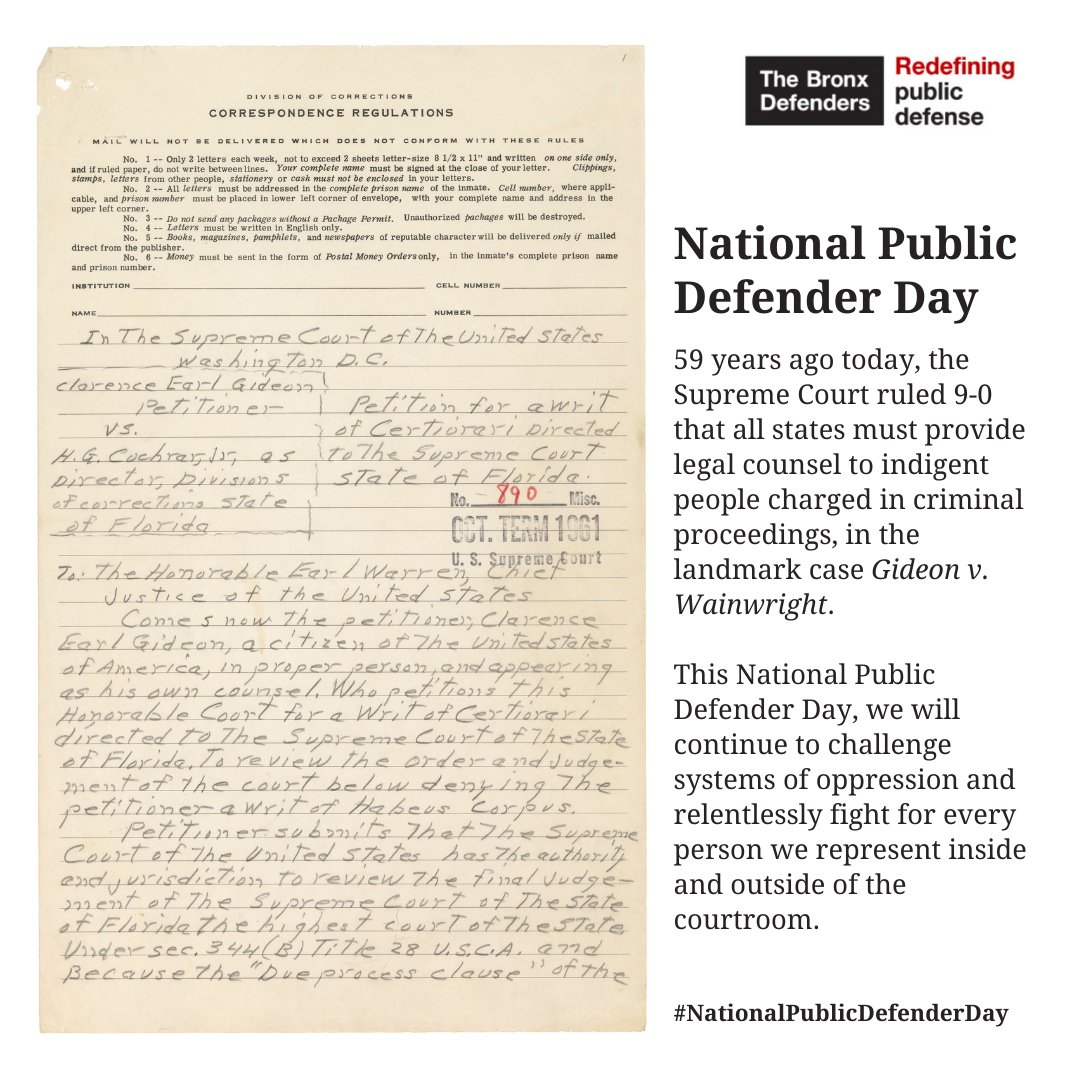 1
DIVISION OF CORRECTIONS
CORRESPONDENCE REGULATIONS
MAIL WILL NOT BE DELIVERED WHICH DOES NOT CONFORM WITH THESE RULES
No. 1 -- Only 2 letters each week, not to exceed 2 sheets letter-size 8 1/2 x 11" and written on one side only,
and if ruled paper, do not write between lines. Your complete name must be signed at the close of your letter. Clippings,
stamps, letters from other people, stationery or cash must not be enclosed in your letters.
No. 2 -- All letters must be addressed in the complete prison name of the inmate. Cell number, where appli-
cable, and prison number must be placed in lower left corner of envelope, with your complete name and address in the
upper left corner.
No. 3 -- Do not send any packages without a Package Permit. Unauthorized packages will be destroyed.
No. 4 -- Letters must be written in English only.
No. 5 -- Books, magazines, pamphlets, and newspapers of reputable character will be delivered only if mailed
direct from the publisher.
No. 6 -- Money must be sent in the form of Postal Money Orders only, in the inmate's complete prison name
and prison number.
INSTITUTION CELL NUMBER
NAME NUMBER
In The Supreme Court of The United States
Washington D.C.
clarence Earl Gideon
Petitioner
vs.
H.G. Cochran, Jr, as
Director, Divisions
of corrections state
of Florida
Petition for a writ
of Certiorari Directed
to The Supreme Court
state of Florida.
No. 890 Misc.
OCT. TERM 1961
U. S. Supreme Court
To: The Honorable Earl Warren, Chief
Justice of the United States
Comes now the petitioner, Clarence
Earl Gideon, a citizen of The United states
of America, in proper person, and appearing
as his own counsel. Who petitions this
Honorable Court for a Writ of Certiorari
directed to The Supreme Court of The State
of Florida. To review the order and Judge-
ment of the court below denying The
petitioner a writ of Habeus Corpus.
Petitioner submits That The Supreme
Court of The United States has The authority
and jurisdiction to review The final Judge-
ment of The Supreme Court of The State
of Florida the highest court of The State
Under sec. 344(B) Title 28 U.S.C.A. and
Because The "Due process clause" of the
The Bronx
Defenders
Redefining
public
defense
National Public
Defender Day
59 years ago today, the
Supreme Court ruled 9-0
that all states must provide
legal counsel to indigent
people charged in criminal
proceedings, in the
landmark case Gideon v.
Wainwright.
This National Public
Defender Day, we will
continue to challenge
systems of oppression and
relentlessly fight for every
person we represent inside
and outside of the
courtroom.
#NationalPublicDefenderDay